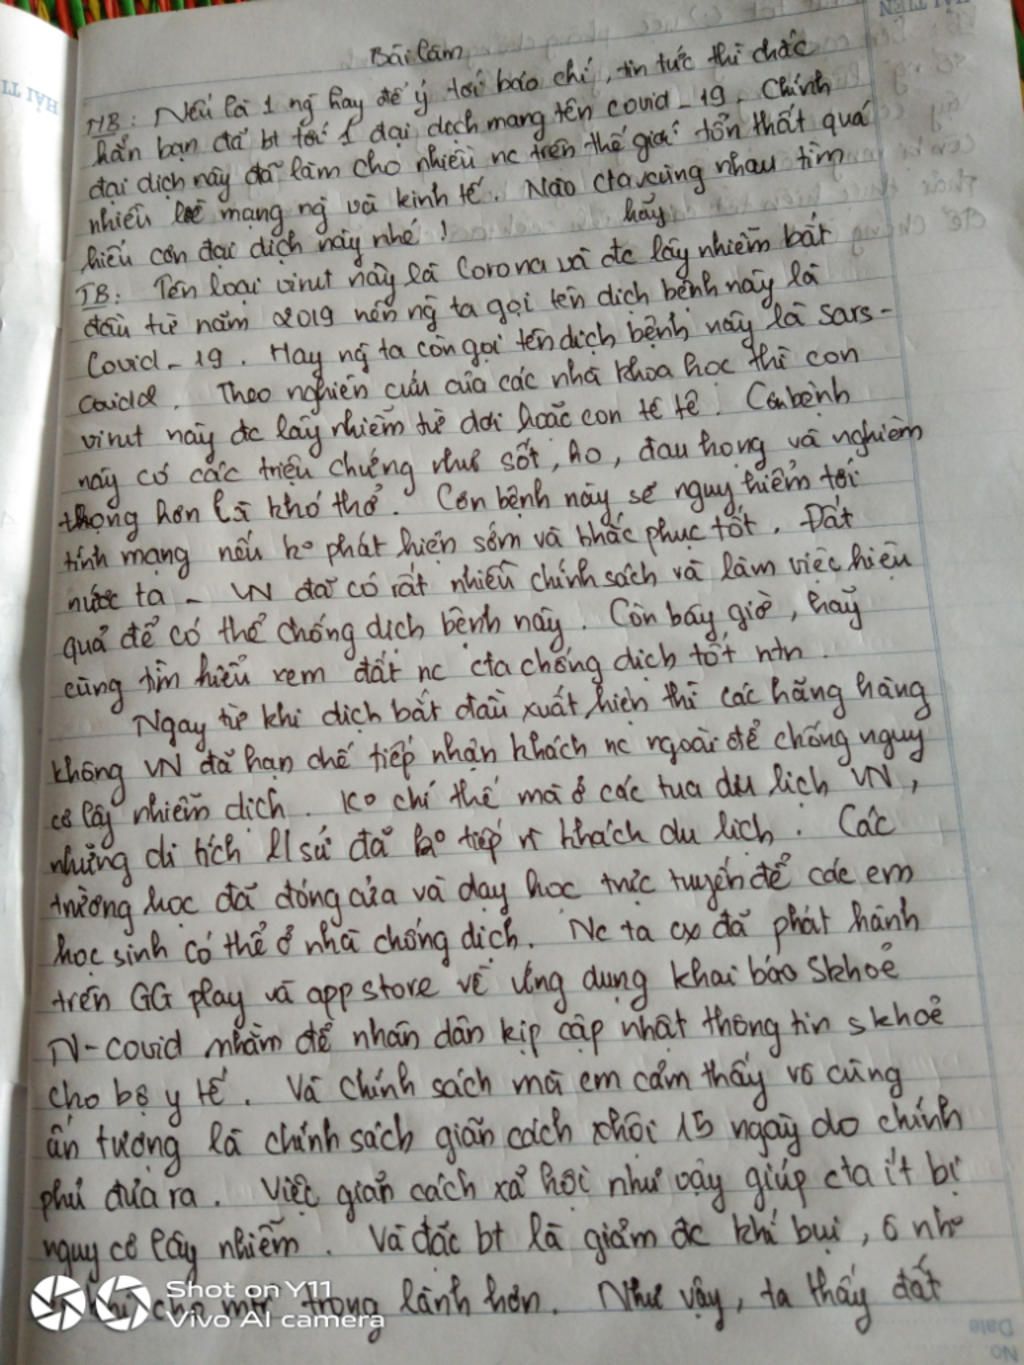 Bài làm
MB: Nếu là 1 ng hay để ý tới báo chí, tin tức thì chắc
hẳn bạn đã bt tới 1 đại dịch mang tên covid-19. Chính
đại dịch này đã làm cho nhiều nc trên thế giới tổn thất quá
nhiều về mạng ng và kinh tế. Nào cta cùng nhau tìm
hãy
hiểu cơn đại dịch này nhé!
TB: Tên loại virut này là Corona và đc lây nhiễm bắt
đầu từ năm 2019 nên ng ta gọi tên dịch bệnh này là
Covid-19. Hay ng ta còn gọi tên dịch bệnh này là Sars-
Theo nghiên cứu của các nhà khoa học thì con
virut này đc lây nhiễm từ dơi hoặc con tê tê. Cơn bệnh
này có các triệu chứng như sốt, ho, đau họng và nghiêm
trọng hơn là khó thở. Cơn bệnh này sẽ nguy hiểm tới
tính mạng nếu ko phát hiện sớm và khắc phục tốt. Đất
nước ta - VN đã có rất nhiều chính sách và làm việc hiệu
quả để có thể chống dịch bệnh này. Còn bây giờ, hãy
cùng tìm hiểu xem đất nc cta chống dịch tốt ntn.
Ngay từ khi dịch bắt đầu xuất hiện thì các hãng hàng
không VN đã hạn chế tiếp nhận khách nc ngoài để chống nguy
cơ lây nhiễm dịch. Ko chỉ thế mà ở các tua du lịch VN,
những di tích l/sử đã ko tiếp khách du lịch. Các
trường học đã đóng cửa và dạy học trực tuyến để các em
học sinh có thể ở nhà chống dịch. Nc ta cx đã phát hành
trên GG play và app store về ứng dụng khai báo skhoẻ
N-covid nhằm để nhân dân kịp cập nhật thông tin skhoẻ
cho bộ y tế. Và chính sách mà em cảm thấy vô cùng
ấn tượng là chính sách giãn cách xhội 15 ngày do chính
phủ đưa ra. Việc giãn cách xã hội như vậy giúp cta ít bị
nguy cơ lây nhiễm. Và đặc bt là giảm đc khí bụi, ô nh
khí cho mtr trong lành hơn. Như vậy, ta thấy đất
Shot on Y11
Vivo AI camera
HẢI TIẾN
No.
Date